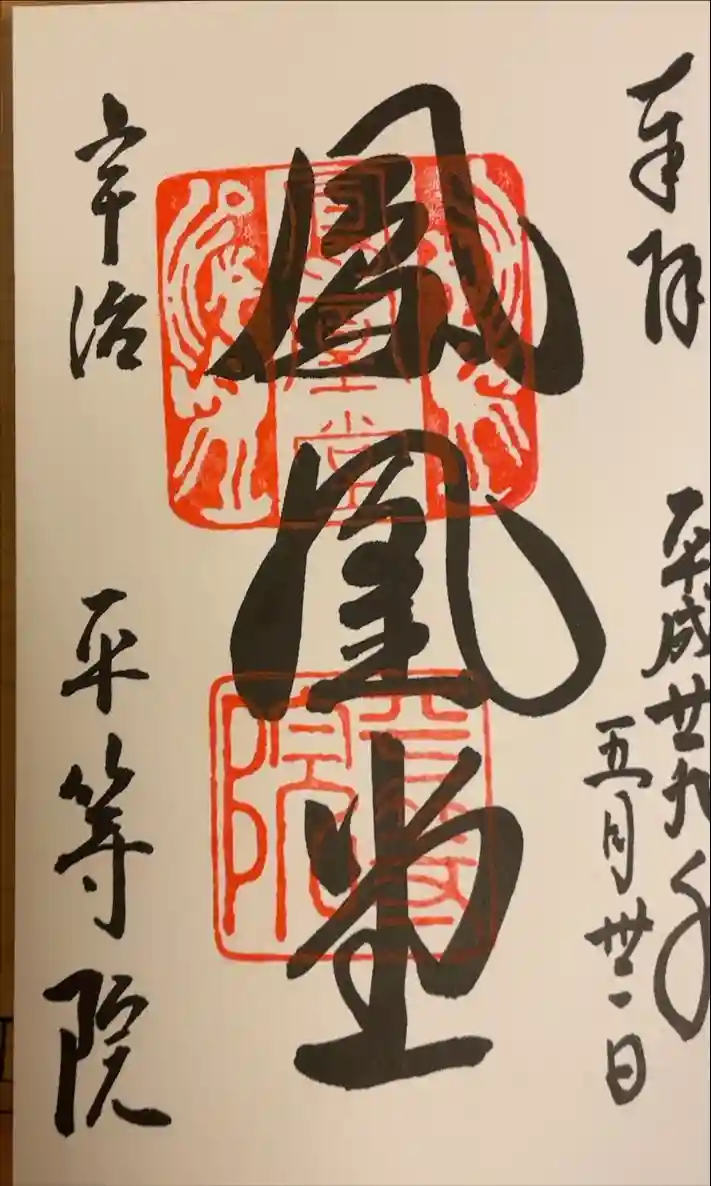 奉拝
平成廿九年
五月卅一日
鳳凰堂
鳳凰堂
平等院
宇治
平等院